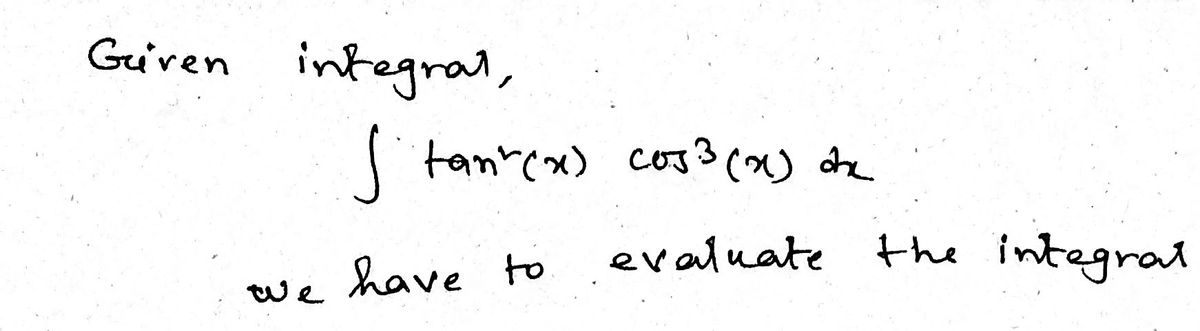 Given integral,
∫ tan²(x) cos³(x) dx
we have to evaluate the integral